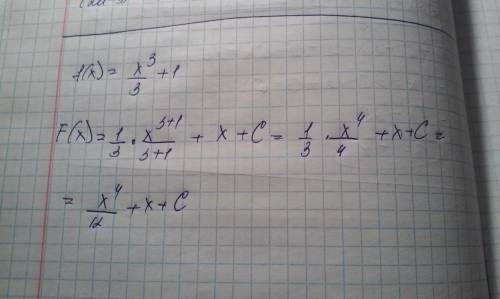 f(x) = x³/3 + 1
F(x) = 1/3 · x³⁺¹/3+1 + x + C = 1/3 · x⁴/4 + x + C =
= x⁴/12 + x + C